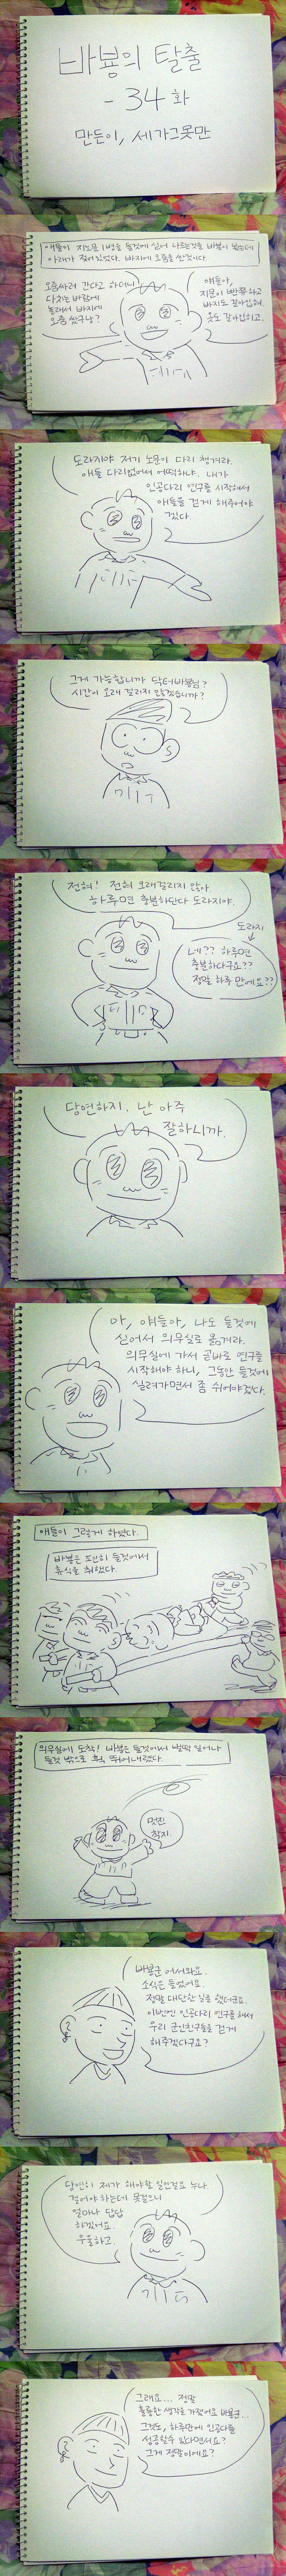 바봉의 탈출
- 34 화
만든이, 세가그못만
애들이 지노문 1병을 들것에 실어 나르는것을 바봉이 봤는데
아래가 젖어있었다. 바지에 오줌을 싼것이다.
오줌싸러 간다고 하더니
다치는 바람에
놀래서 바지에
오줌 쌌구낭?
얘들아,
지문이 빤쮸하고
바지도 갈아입혀.
옷도 갈아입히고.
도라지야 저기 노문이 다리 챙겨라.
애들 다리없어서 어떡하냐. 내가
인공다리 연구를 시작해서
애들을 걷게 해주어야
겠다.
그게 가능합니까 닥터바봉님?
시간이 오래 걸리지 않겠습니까?
전혀! 전혀 오래걸리지 않아.
하루면 충분하단다 도라지야.
도라지
네?? 하루면
충분하다구요??
정말 하루 만에요??
당연하지. 난 아주
잘하니까.
아, 얘들아, 나도 들것에
실어서 의무실로 옮겨라.
의무실에 가서 곧바로 연구를
시작해야 하니, 그동안 들것에
실려가면서 좀 쉬어야겠다.
애들이 그렇게 하였다.
바봉은 편히 들것에서
휴식을 취했다.
의무실에 도착! 바봉은 들것에서 벌떡 일어나
들것 밖으로 훅 뛰어내렸다.
멋진
착지.
바봉군 어서와요.
소식은 들었어요.
정말 대단한 일을 했더군요.
이번엔 인공다리 연구를 해서
우리 군인친구들을 걷게
해주겠다구요?
당연히 제가 해야할 일인걸요 누나.
걸어야 하는데 못걸으니
얼마나 답답
하겠어요.
우울하고.
그래요... 정말
훌륭한 생각을 가졌어요 바봉군...
그것도, 하루만에 인공다리를
성공할수 있다면서요?
그게 정말이에요?